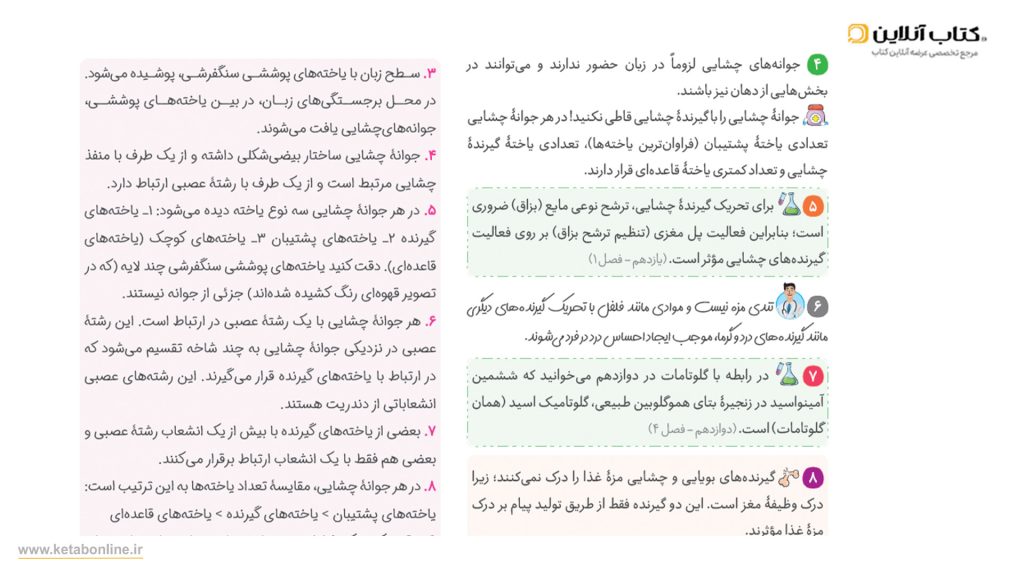 کتاب آنلاین
مرجع تخصصی عرضه آنلاین کتاب
۴ جوانه‌های چشایی لزوماً در زبان حضور ندارند و می‌توانند در
بخش‌هایی از دهان نیز باشند.
جوانهٔ چشایی را با گیرندهٔ چشایی قاطی نکنید! در هر جوانهٔ چشایی
تعدادی یاختهٔ پشتیبان (فراوان‌ترین یاخته‌ها)، تعدادی یاختهٔ گیرندهٔ
چشایی و تعداد کمتری یاختهٔ قاعده‌ای قرار دارند.
۵ برای تحریک گیرندهٔ چشایی، ترشح نوعی مایع (بزاق) ضروری
است؛ بنابراین فعالیت پل مغزی (تنظیم ترشح بزاق) بر روی فعالیت
گیرنده‌های چشایی مؤثر است. (یازدهم – فصل ۱)
۶ تندی مزه نیست و موادی مانند فلفل با تحریک گیرنده‌های دیگری
مانند گیرنده‌های درد و گرما، موجب ایجاد احساس درد در فرد می‌شوند.
۷ در رابطه با گلوتامات در دوازدهم می‌خوانید که ششمین
آمینواسید در زنجیرهٔ بتای هموگلوبین طبیعی، گلوتامیک اسید (همان
گلوتامات) است. (دوازدهم – فصل ۴)
۸ گیرنده‌های بویایی و چشایی مزهٔ غذا را درک نمی‌کنند؛ زیرا
درک وظیفهٔ مغز است. این دو گیرنده فقط از طریق تولید پیام بر درک
مزهٔ غذا مؤثرند.
۳. سـطح زبان با یاخته‌های پوششـی سنگفرشـی، پوشـیده می‌شود.
در محـل برجسـتگی‌های زبـان، در بیـن یاخته‌هـای پوششـی،
جوانه‌های‌چشایی یافت می‌شوند.
۴. جوانهٔ چشایی ساختار بیضی‌شکلی داشته و از یک طرف با منفذ
چشایی مرتبط است و از یک طرف با رشتهٔ عصبی ارتباط دارد.
۵. در هر جوانهٔ چشایی سه نوع یاخته دیده می‌شود: ۱ـ یاخته‌های
گیرنده ۲ـ یاخته‌های پشتیبان ۳ـ یاخته‌های کوچک (یاخته‌های
قاعده‌ای). دقت کنید یاخته‌های پوششی سنگفرشی چند لایه (که در
تصویر قهوه‌ای رنگ کشیده شده‌اند) جزئی از جوانه نیستند.
۶. هر جوانهٔ چشایی با یک رشتهٔ عصبی در ارتباط است. این رشتهٔ
عصبی در نزدیکی جوانهٔ چشایی به چند شاخه تقسیم می‌شود که
در ارتباط با یاخته‌های گیرنده قرار می‌گیرند. این رشته‌های عصبی
انشعاباتی از دندریت هستند.
۷. بعضی از یاخته‌های گیرنده با بیش از یک انشعاب رشتهٔ عصبی و
بعضی هم فقط با یک انشعاب ارتباط برقرار می‌کنند.
۸. در هر جوانهٔ چشایی، مقایسهٔ تعداد یاخته‌ها به این ترتیب است:
یاخته‌های پشتیبان > یاخته‌های گیرنده > یاخته‌های قاعده‌ای
www.ketabonline.ir